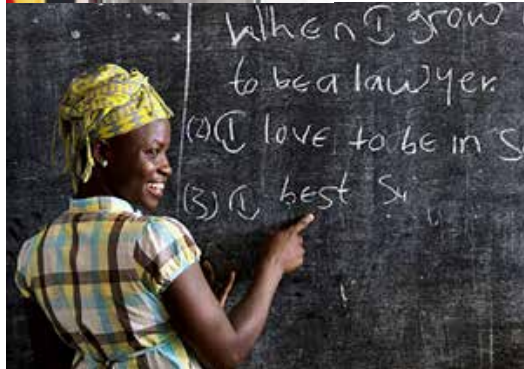 When I grow
to be a lawyer.
(2) I love to be in S
(3) I best Su